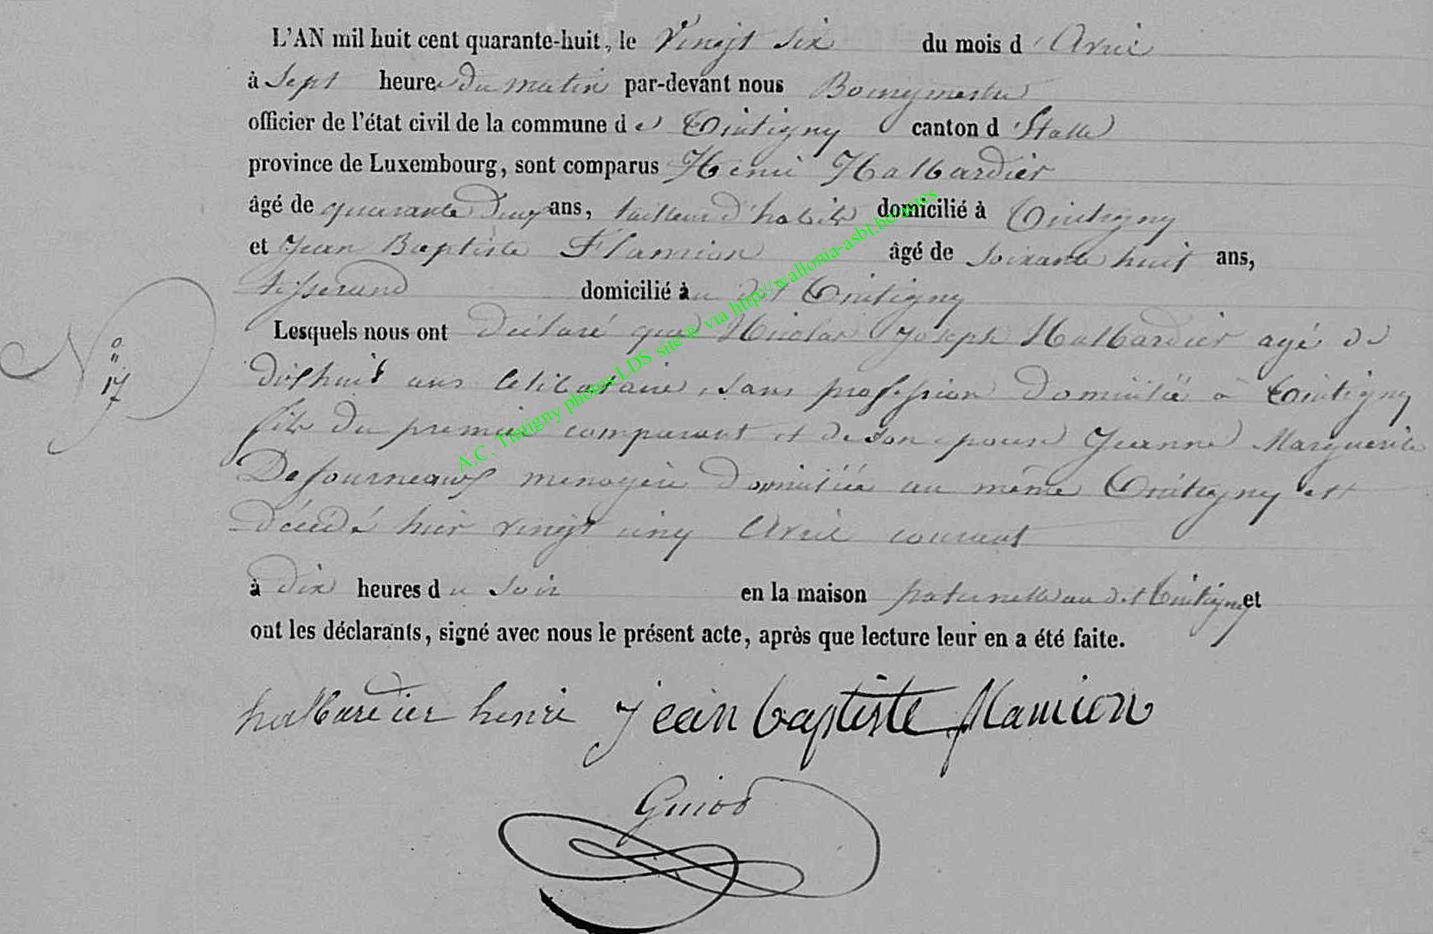 L'AN mil huit cent quarante-huit, le Vingt Six du mois d'Avril
à Sept heures du matin par-devant nous Bourgmestre
officier de l'état civil de la commune de Tintigny canton d'Etalle
province de Luxembourg, sont comparus Henri Halbardier
âgé de quarante Deux ans, tailleur d'habits domicilié à Tintigny
et Jean Baptiste Flamion âgé de soixante huit ans,
tisserand domicilié au dit Tintigny
Lesquels nous ont déclaré que Nicolas Joseph Halbardier agé de
N° 17
dixhuit ans Célibataire, sans profession Domicilié à Tintigny
fils du premier comparant et de son epouse Jeanne Marguerite
Desfourneaux menagère Domiciliée au même Tintigny est
décédé hier vingt cinq Avril courant
à Dix heures du soir en la maison paternelle au dit Tintigny et
ont les déclarants, signé avec nous le présent acte, après que lecture leur en a été faite.
halbardier henri jean baptiste flamion
Guiot
A.C. Tintigny photos LDS site © via http://wallonia-asbl.be